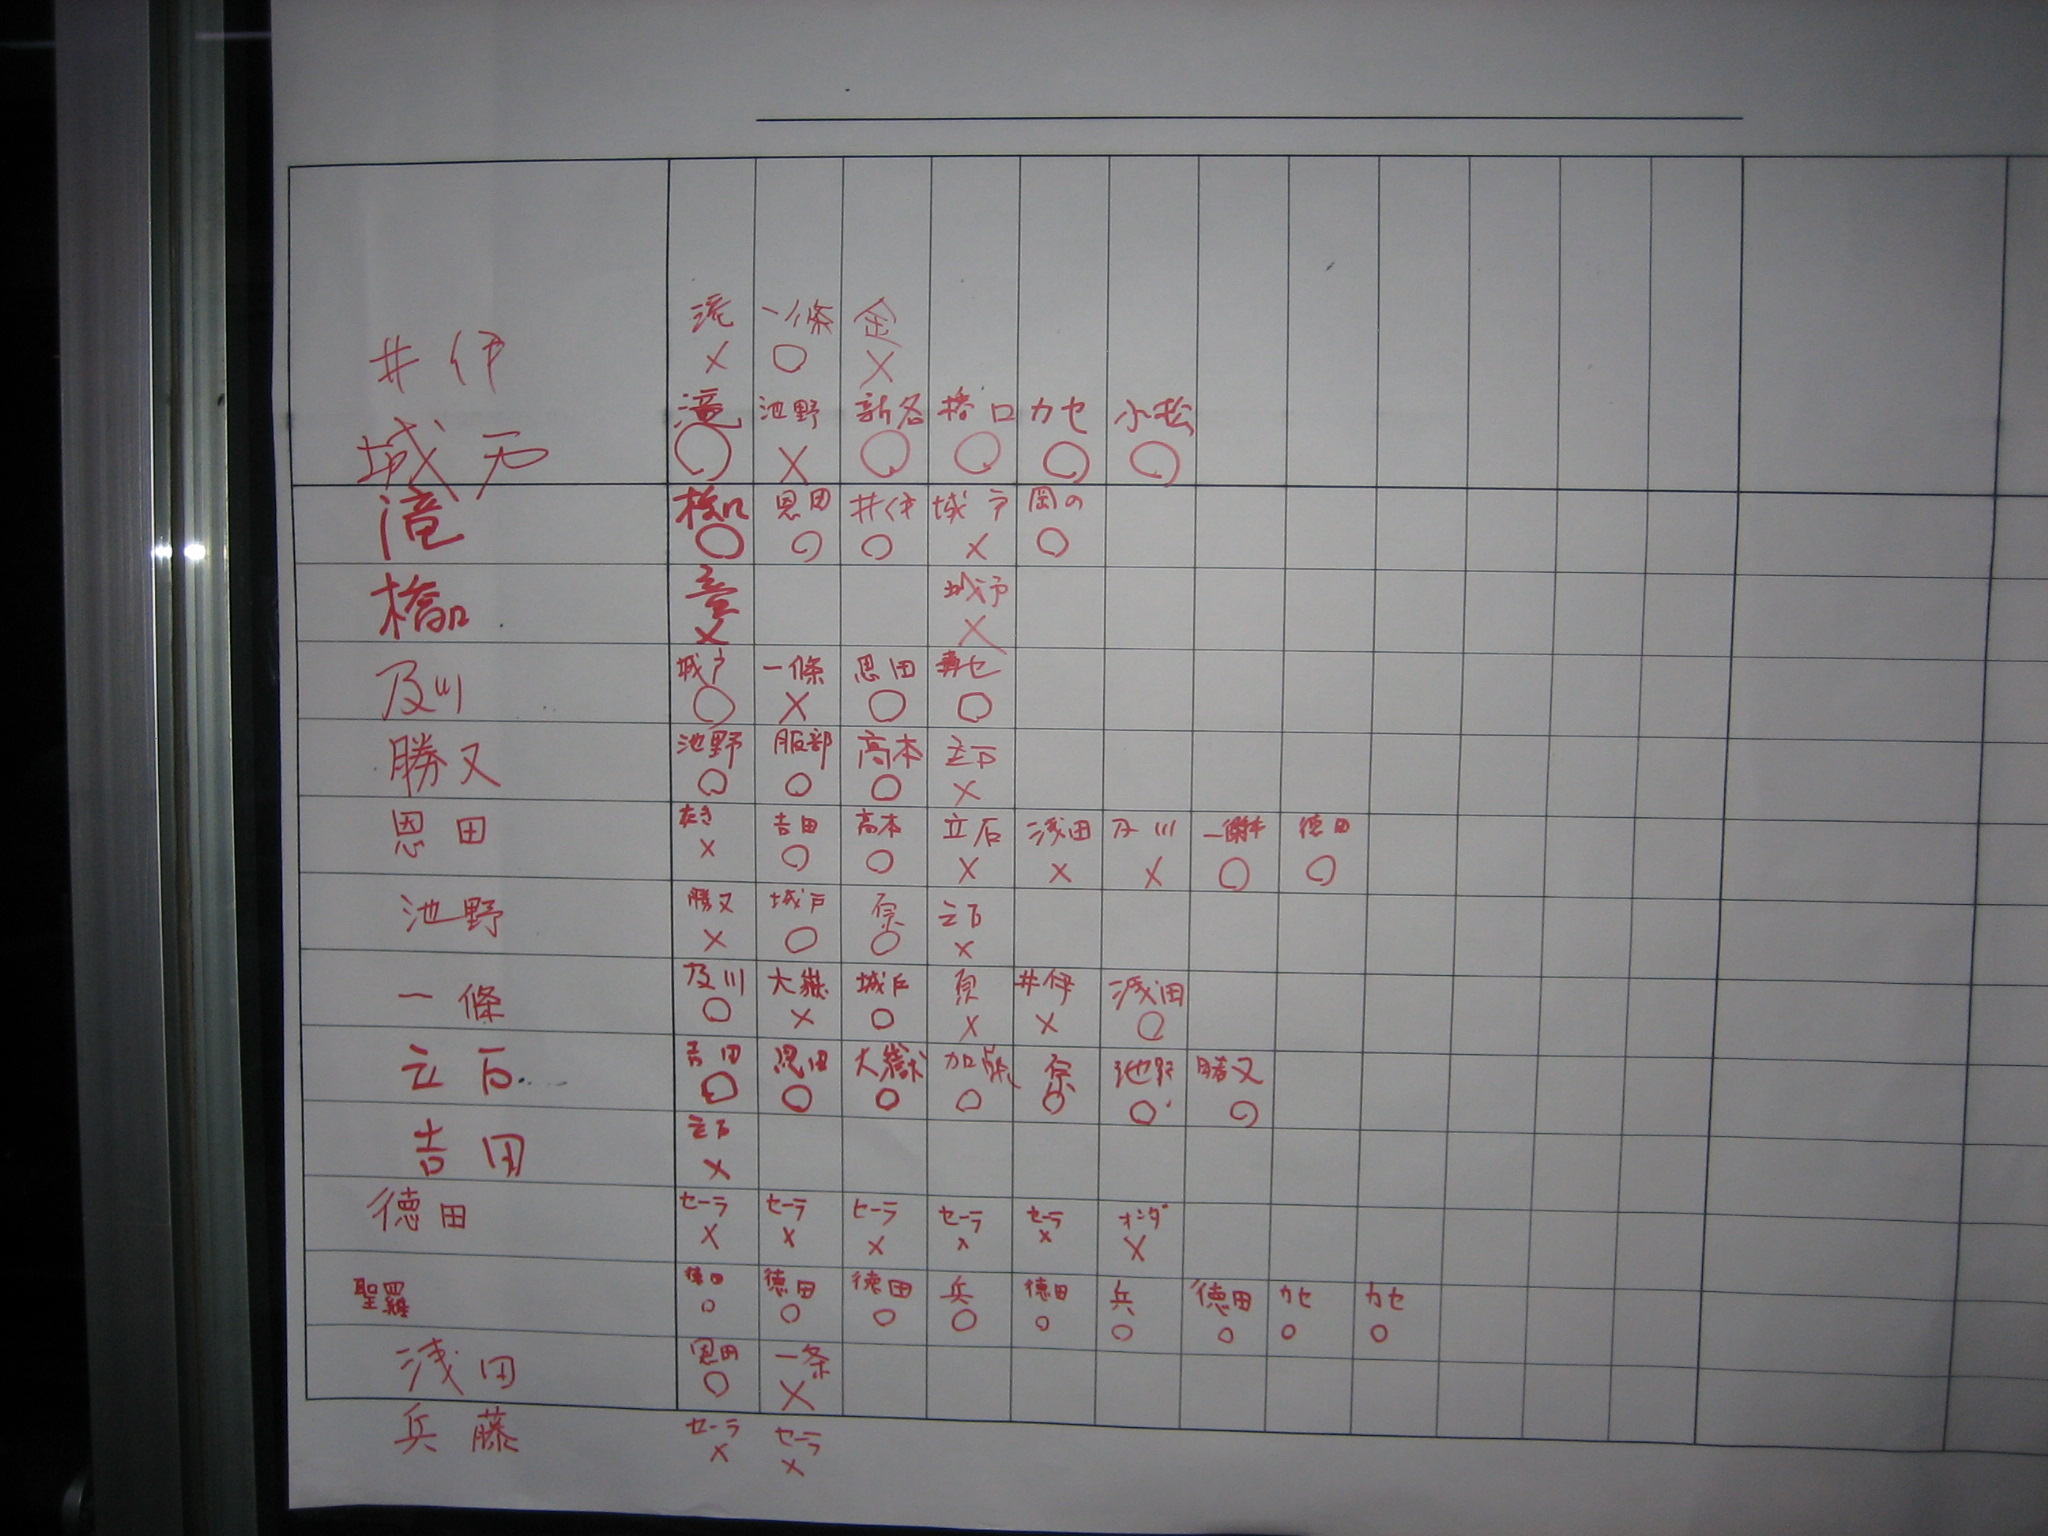 滝 一條 金
井伊 × ○ ×
滝 池野 新名 橋口 カセ 小松
城戸 ○ × ○ ○ ○ ○
橋口 恩田 井伊 城戸 岡の
滝 ○ ○ ○ × ○
竜 城戸
橋口 × ×
城戸 一條 恩田 セ
及川 ○ × ○ ○
池野 服部 高本 立石
勝又 ○ ○ ○ ×
たき 吉田 高本 立石 浅田 及川 一條 徳田
恩田 × ○ ○ × × × ○ ○
勝又 城戸 原 立石
池野 × ○ ○ ×
及川 大嶽 城戸 原 井伊 浅田
一條 ○ × ○ × × ○
吉田 恩田 大嶽 加藤 原 池野 勝又
立石 ○ ○ ○ ○ ○ ○ ○
立石
吉田 ×
セーラ セーラ セーラ セーラ セーラ オンダ
徳田 × × × × × ×
徳田 徳田 徳田 兵 徳田 兵 徳田 カセ カセ
聖羅 ○ ○ ○ ○ ○ ○ ○ ○ ○
恩田 一条
浅田 ○ ×
セーラ セーラ
兵藤 × ×